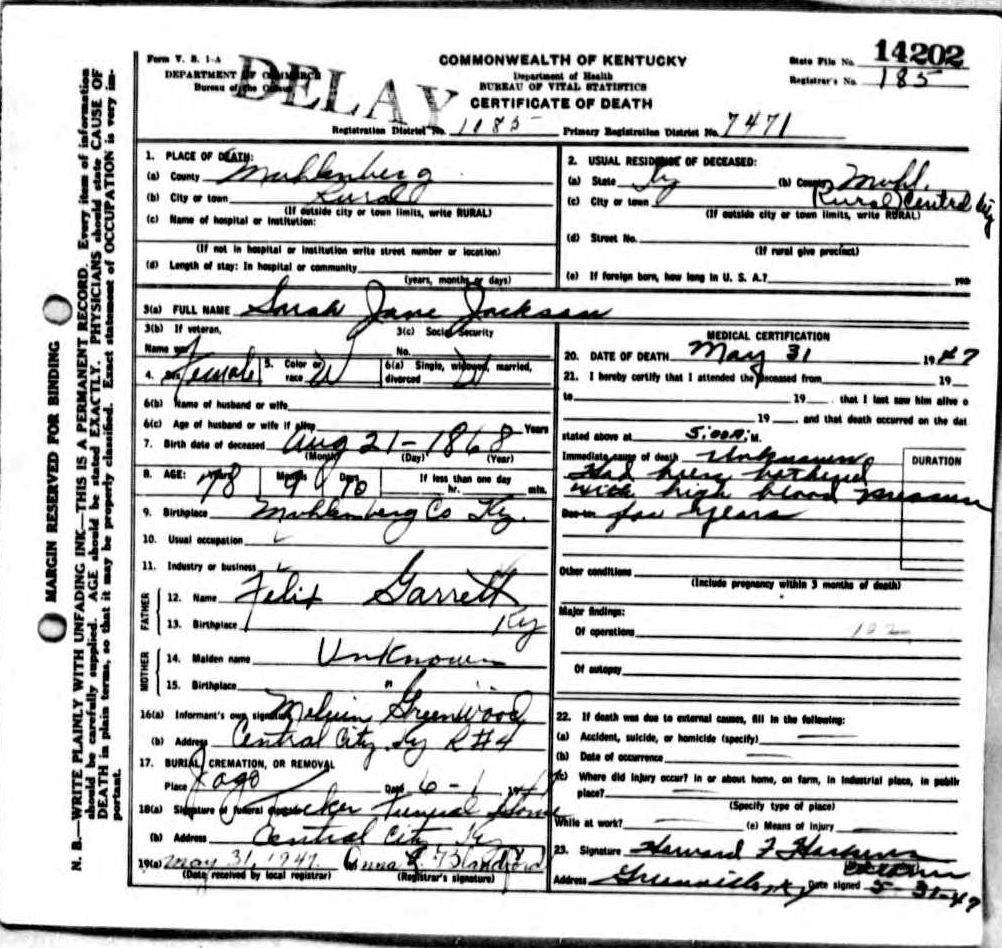 Form V. S. 1-A
DEPARTMENT OF COMMERCE
Bureau of the Census
DELAY
COMMONWEALTH OF KENTUCKY
Department of Health
BUREAU OF VITAL STATISTICS
CERTIFICATE OF DEATH
State File No. 14202
Registrar's No. 185
Registration District No. 1185 Primary Registration District No. 7471
MARGIN RESERVED FOR BINDING
N. B.—WRITE PLAINLY WITH UNFADING INK—THIS IS A PERMANENT RECORD. Every item of information
should be carefully supplied. AGE should be stated EXACTLY. PHYSICIANS should state CAUSE OF
DEATH in plain terms, so that it may be properly classified. Exact statement of OCCUPATION is very im-
portant.
1. PLACE OF DEATH:
(a) County Muhlenberg
(b) City or town Rural
(If outside city or town limits, write RURAL)
(c) Name of hospital or institution:
(If not in hospital or institution write street number or location)
(d) Length of stay: In hospital or community
(years, months or days)
2. USUAL RESIDENCE OF DECEASED:
(a) State Ky (b) County Muhl.
(c) City or town (Rural) Central City
(If outside city or town limits, write RURAL)
(d) Street No.
(If rural give precinct)
(e) If foreign born, how long in U. S. A.?
3(a) FULL NAME Sarah Jane Jackson
3(b) If veteran,
Name war
3(c) Social Security
No.
4. Sex Female 5. Color or race W 6(a) Single, widowed, married, divorced W
6(b) Name of husband or wife
6(c) Age of husband or wife if alive Years
7. Birth date of deceased Aug 21-1868
(Month) (Day) (Year)
8. AGE: 78 Months 9 Days 10 If less than one day
hr. min.
9. Birthplace Muhlenberg Co Ky.
10. Usual occupation
11. Industry or business
FATHER
12. Name Felix Garrett
13. Birthplace Ky
MOTHER
14. Maiden name Unknown
15. Birthplace "
16(a) Informant's own signature Melvin Greenwood
(b) Address Central City, Ky R#4
17. BURIAL, CREMATION, OR REMOVAL
Place Jago Date 6-1 1947
18(a) Signature of funeral director Tucker Funeral Home
(b) Address Central City Ky
19(a) May 31, 1947. Anna
(Date received by local registrar) (Registrar's signature)
MEDICAL CERTIFICATION
20. DATE OF DEATH May 31 1947
21. I hereby certify that I attended the deceased from 19
to 19 that I last saw him alive o
19 and that death occurred on the dat
stated above at 5:00 A. M.
Immediate cause of death Unknown
Had been bothered
with high blood pressure
Due to for years
DURATION
Other conditions
(Include pregnancy within 3 months of death)
Major findings:
Of operations 102
Of autopsy
22. If death was due to external causes, fill in the following:
(a) Accident, suicide, or homicide (specify)
(b) Date of occurrence
(c) Where did injury occur? In or about home, on farm, in industrial place, in public
place?
(Specify type of place)
While at work? (e) Means of injury
23. Signature Harward F
Address Greenville, Ky Date signed 5-31-47